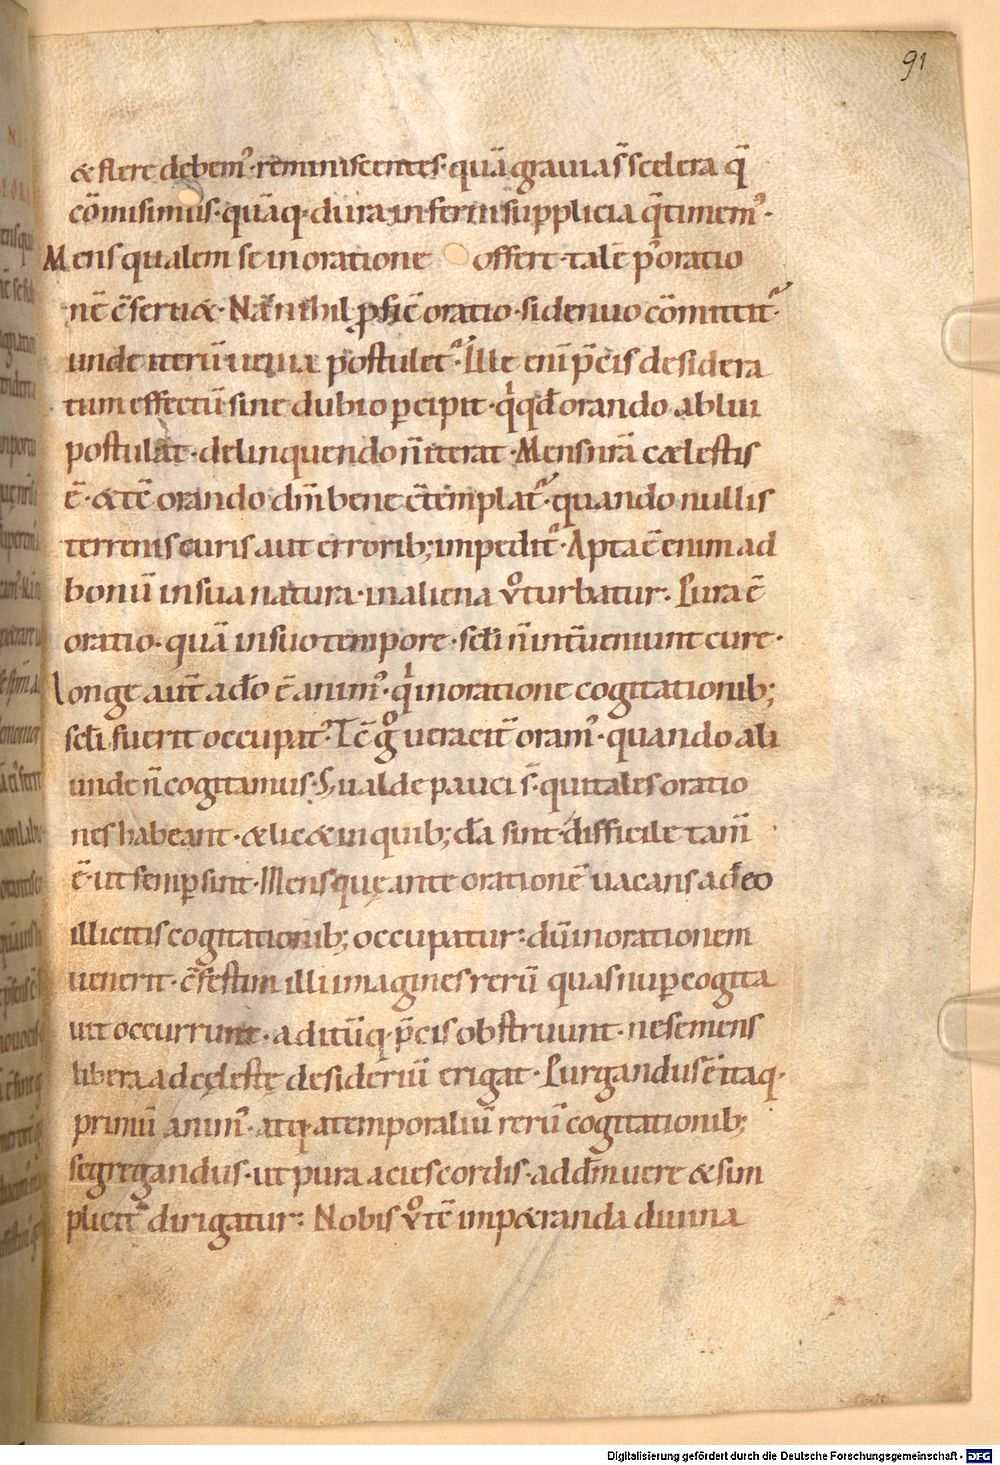 91
& flere debem᾿ · reminiscentes · quā gravia s̄ scelera q̄
cōmisimus · quāq · dura inferni supplicia q̄ timem᾿ ·
Mens qualem se in oratione offert · talē p᾿ oratio
nē c̄servat · Nā nihil ꝓficē oratio · si denuo cōmittit᾿ ·
unde iterū venia postulet᾿ · Ille enī p̄cis desidera
tum effectū sine dubio ꝑcipit · q̍ qđ orando ablui
postulat · delinquendo n̄ iterat · Mens nrā cælestis
ē · & tē orando dm̄ bene c̄templat᾿ · quando nullis
terrenis curis aut errorib; impedit᾿ · Apta ē enim ad
bonū in sua natura · in aliena v᾿o turbatur · Pura ē
oratio · quā in suo tempore · sc̄li n̄ int̄veniunt cure ·
Longe aut̄ a do̅ ē anim᾿ · q̍ in oratione cogitationib;
sc̄li fuerit occupat᾿ · Tē g̊ veracit̄ oram᾿ · quando ali
unde n̄ cogitamus · S; valde pauci s̄ · qui tales oratio
nes habeant · & lic& in quib;dā sint · difficile tam̄
ē · ut semꝑ sint · Mens quę ante orationē vacans a do̅
illicitis cogitationib; occupatur : dū in orationem
venerit · c̄festim illi imagines rerū quas nuꝑ cogita
vit occurrunt · aditūq · p̄cis obstruunt · ne se mens
libera ad cęlestę desideriū erigat · Purgandus ē itaq ·
primū anim᾿ · atq · a temporaliū rerū cogitationib;
segregandus · ut pura acies cordis · ad dm̄ vere & sim
plicit̄ dirigatur : Nobis v᾿o tē imp&randa divina
Digitalisierung gefördert durch die Deutsche Forschungsgemeinschaft - DFG